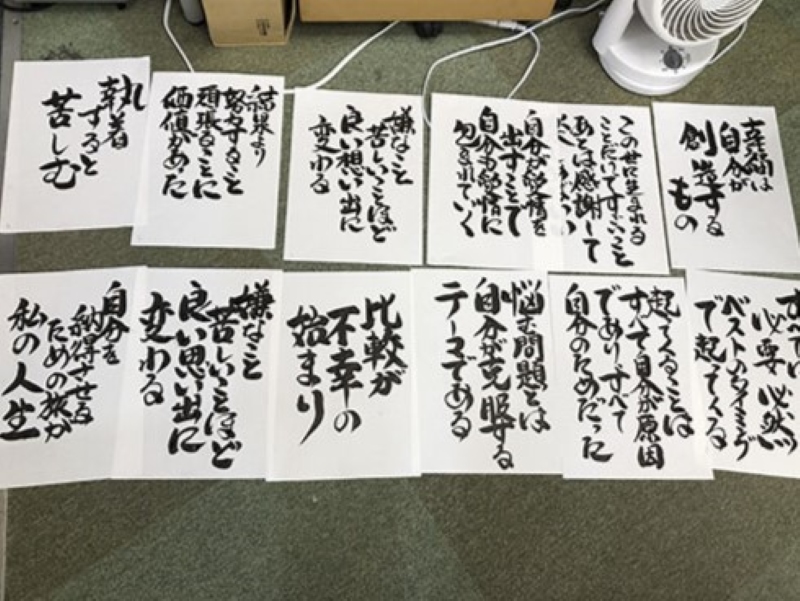 幸福は
自分が
創造する
もの
この世に生まれる
ことだけですごいこと
あとは感謝して
自分が愛情を
出すことで
自分も愛情に
包まれていく
嫌なこと
苦しいことほど
良い想い出に
変わる
結果より
努力すること
頑張ることに
価値があった
執着
すると
苦しむ
すべては
必要必然
ベストのタイミング
で起ってくる
起ってくることは
すべて自分が原因
でありすべて
自分のためだった
悩む問題とは
自分が克服する
テーマである
比較が
不幸の
始まり
嫌なこと
苦しいことほど
良い思い出に
変わる
自分を
納得させる
ための旅が
私の人生